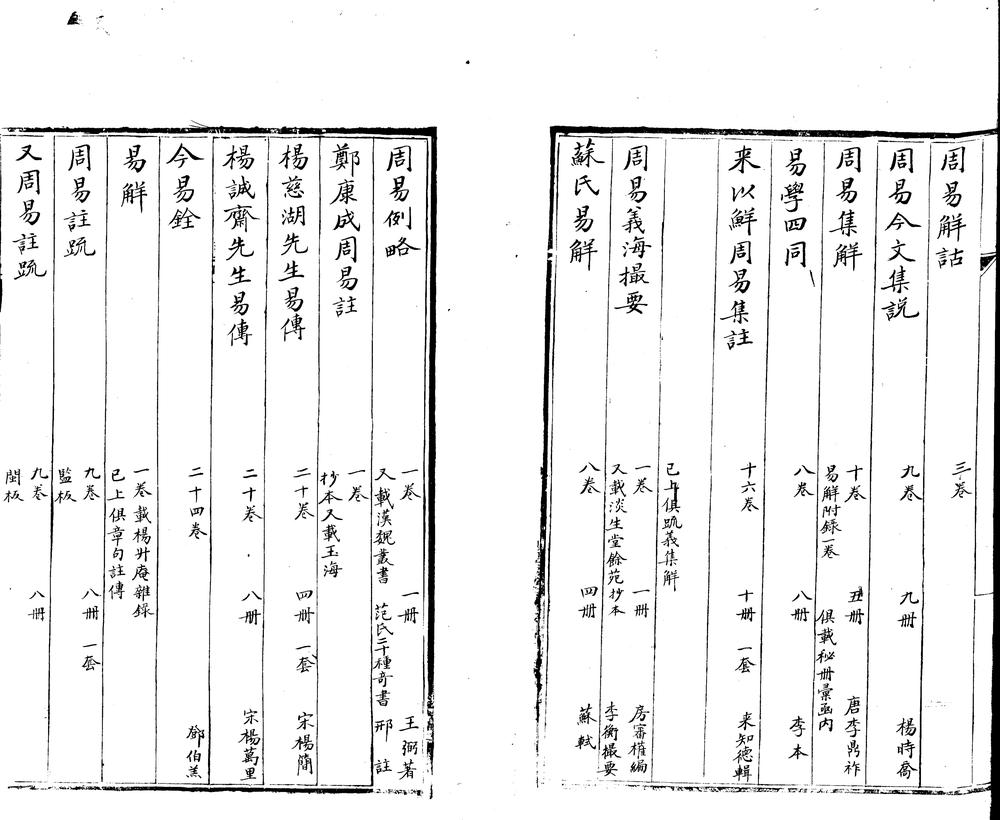 周易解詁 三卷
周易今文集説 九卷 九册 楊時喬
周易集解 十卷 五册 唐李鼎祚
易解附録一卷 俱載秘册彙函内
易學四同 八卷 八册 李本
来以鮮周易集註 十六卷 十册 一套 来知德輯
已上俱疏義集解
周易義海撮要 一卷 一册 房審權編
又載淡生堂餘苑抄本 李衡撮要
蘇氏易解 八卷 四册 蘇軾
周易例略 一卷 一册 王弼著
又載漢魏叢書 范氏二十種奇書 邢 註
鄭康成周易註 一卷
抄本又載玉海
楊慈湖先生易傳 二十卷 四册 一套 宋楊簡
楊誠齋先生易傳 二十卷 八册 宋楊萬里
今易銓 二十四卷 鄧伯羔
易解 一卷載楊升庵雜録
已上俱章句註傳
周易註疏 九卷 八册 一套
監板
又周易註疏 九卷 八册
閩板